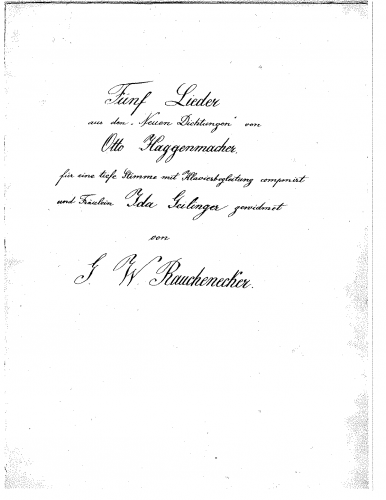 Fünf Lieder
aus den „Neuen Dichtungen" von
Otto Haggenmacher.
für eine tiefe Stimme mit Klavierbegleitung componirt
und Fräulein Ida Geilinger gewidmet
von
G. W. Rauchenecker.